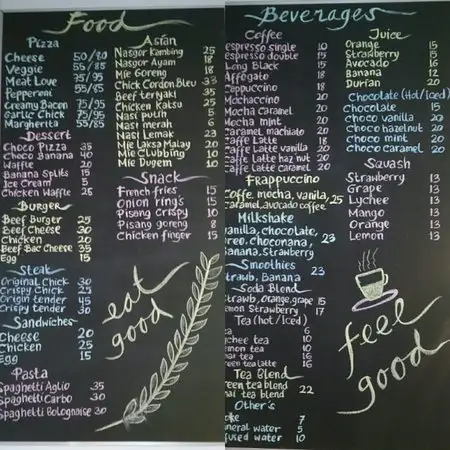 Food
Pizza
Cheese 50/80
Veggie 55/85
Meat Love 75/95
Pepperoni 55/85
Creamy Bacon 75/95
Garlic Chick 75/95
Margherita 55/85
Dessert
Choco Pizza 35
Choco Banana 40
Waffle 20
Banana Splits 15
Ice Cream 5
Chicken Waffle 25
Burger
Beef Burger 25
Beef Cheese 30
Chicken 20
Beef Bac Cheese 35
Egg 15
Steak
Original Chick 30
Crispy Chick 25
Origin tender 45
Crispy tender 30
Sandwiches
Cheese 20
Chicken 25
Egg 15
Pasta
Spaghetti Aglio 35
Spaghetti Carbo 30
Spaghetti Bolognaise 30
Asian
Nasgor Kambing 25
Nasgor Ayam 18
Mie Goreng 18
Chick Cordon Bleu 33
Beef teriyaki 35
Chicken Katsu 25
Nasi putih 5
Nasi merah 6
Nasi Lemak 23
Mie Laksa Malay 20
Mie Clubbing 10
Mie Dugem 10
Snack
French-fries 15
Onion rings 15
Pisang Crispy 10
Pisang goreng 8
Chicken finger 15
eat
good
Beverages
Coffee
espresso single 10
espresso double 15
Long Black 15
Affogato 18
Cappuccino 18
Mochaccino 20
Mocha Caramel 20
Mocha mint 20
Caramel machiato 20
Caffe Latte 18
Caffe Latte vanilla 20
Caffe Latte haz nut 20
Caffe Latte caramel 20
Frappuccino
Coffe mocha, vanila, 25
caramel, avocado coffee
Milkshake
vanilla, chocolate,
oreo, choconana, 23
banana, strawberry
Smoothies
strawb, Banana 23
Soda Blend
strawb, orange, grape 15
lemon Strawberry 17
Tea (hot/iced)
tea 6
lychee tea 10
lemon tea 10
thai tea 16
green tea latte 16
Tea Blend
green tea blend
thai tea blend 22
Other's
coke 7
mineral water 5
infused water 10
Juice
Orange 15
Strawberry 15
Avocado 16
Banana 12
Durian 20
Chocolate (Hot/Iced)
Chocolate 15
Choco vanilla 20
Choco hazelnut 20
Choco mint 20
Choco caramel 20
Squash
Strawberry 13
Grape 13
Lychee 13
Mango 13
Orange 13
Lemon 13
feel
good